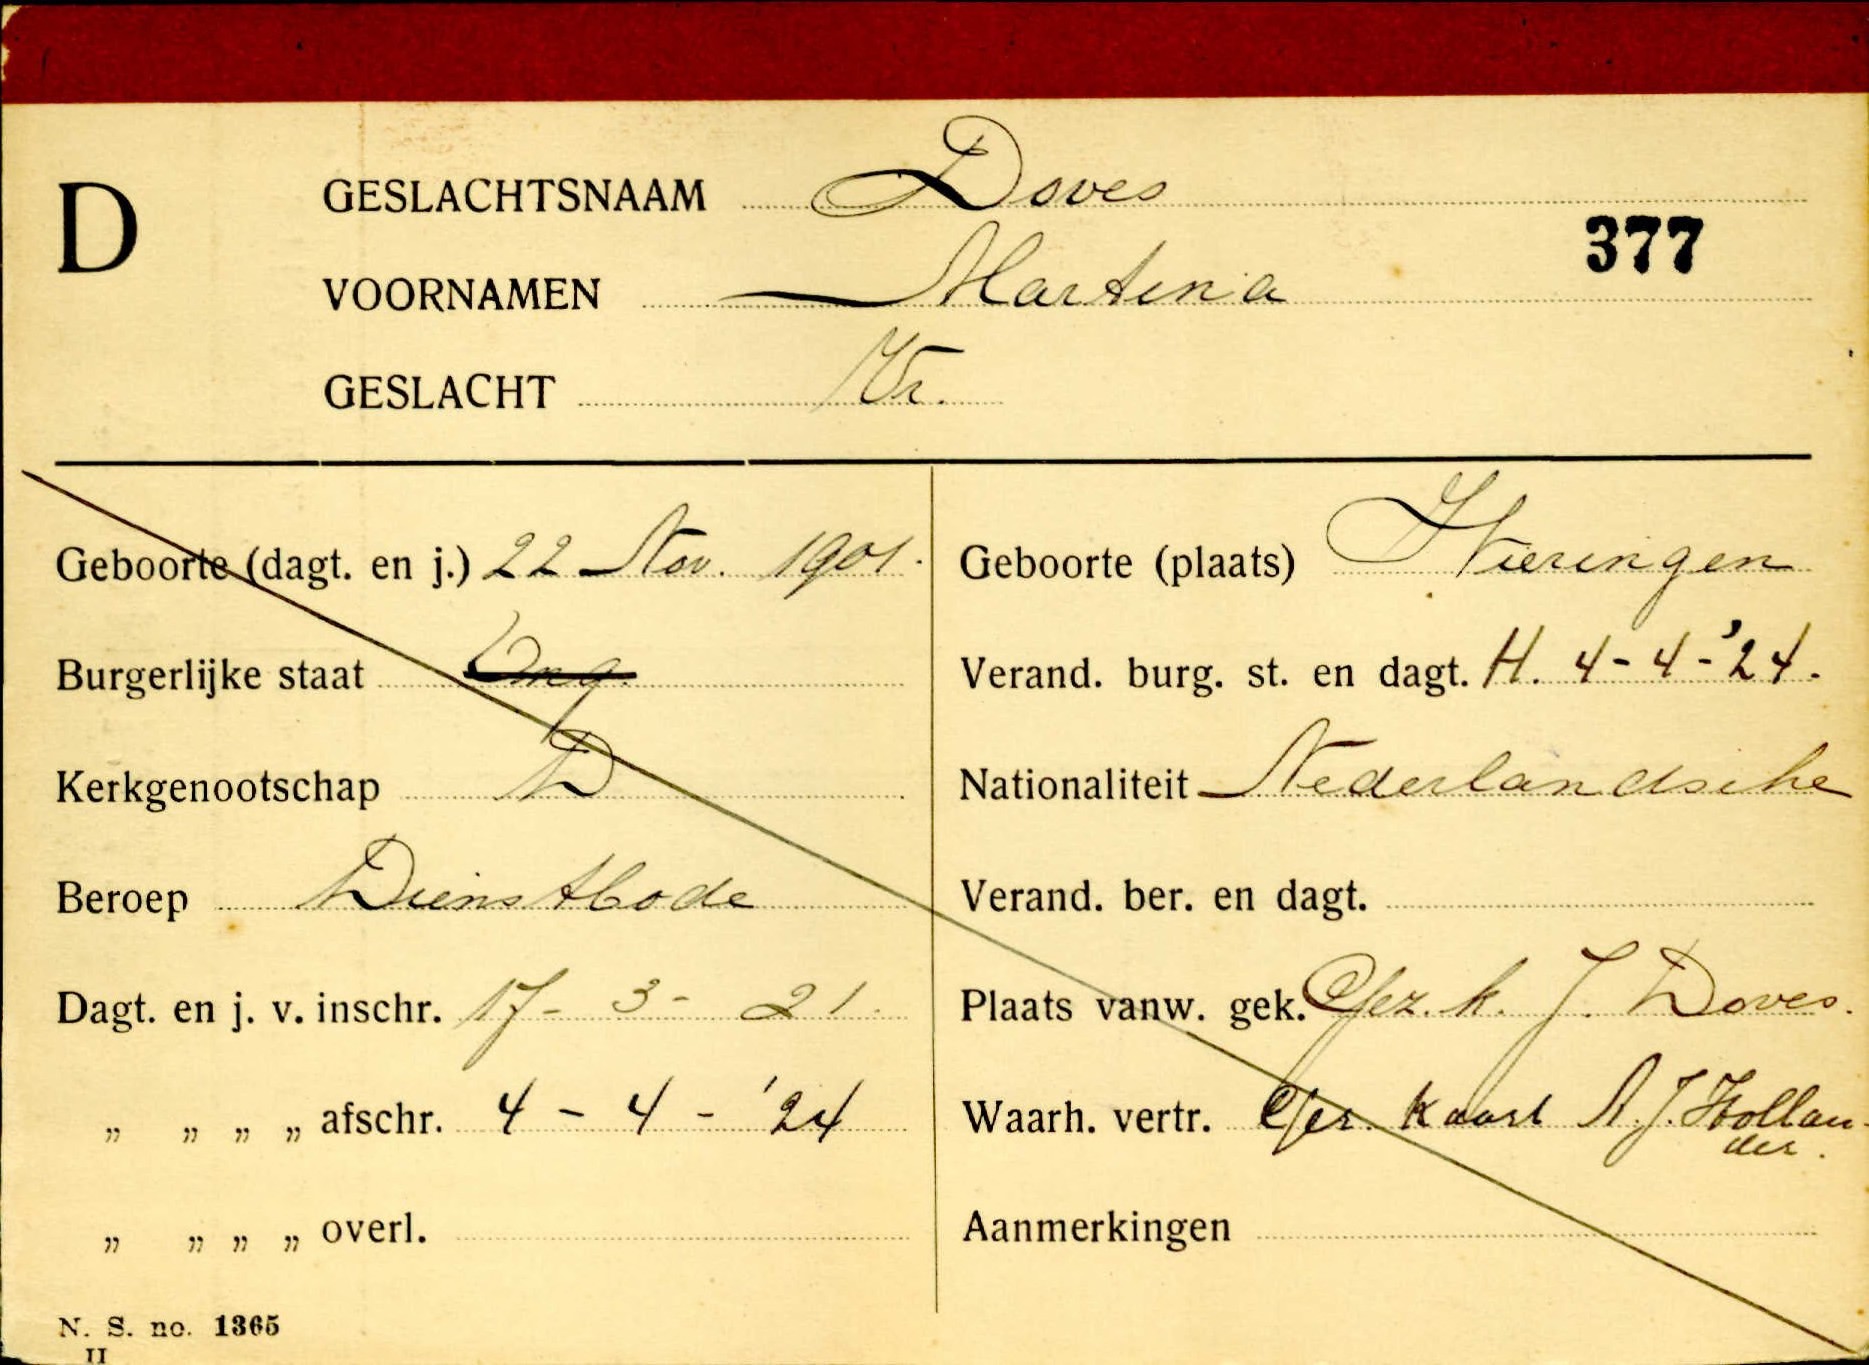 D
GESLACHTSNAAM Doves
377
VOORNAMEN Martina
GESLACHT Vr.
Geboorte (dagt. en j.) 22 Nov. 1901.
Geboorte (plaats) Wieringen
Burgerlijke staat Ong.
Verand. burg. st. en dagt. H. 4-4-'24.
Kerkgenootschap D
Nationaliteit Nederlandsche
Beroep Dienstbode
Verand. ber. en dagt.
Dagt. en j. v. inschr. 17-3-21.
Plaats vanw. gek. Gez. k. J. Doves.
„ „ „ „ afschr. 4-4-'24
Waarh. vertr. Gez. kaart A. J. Hollan-
der.
„ „ „ „ overl.
Aanmerkingen
N. S. no. 1365
II